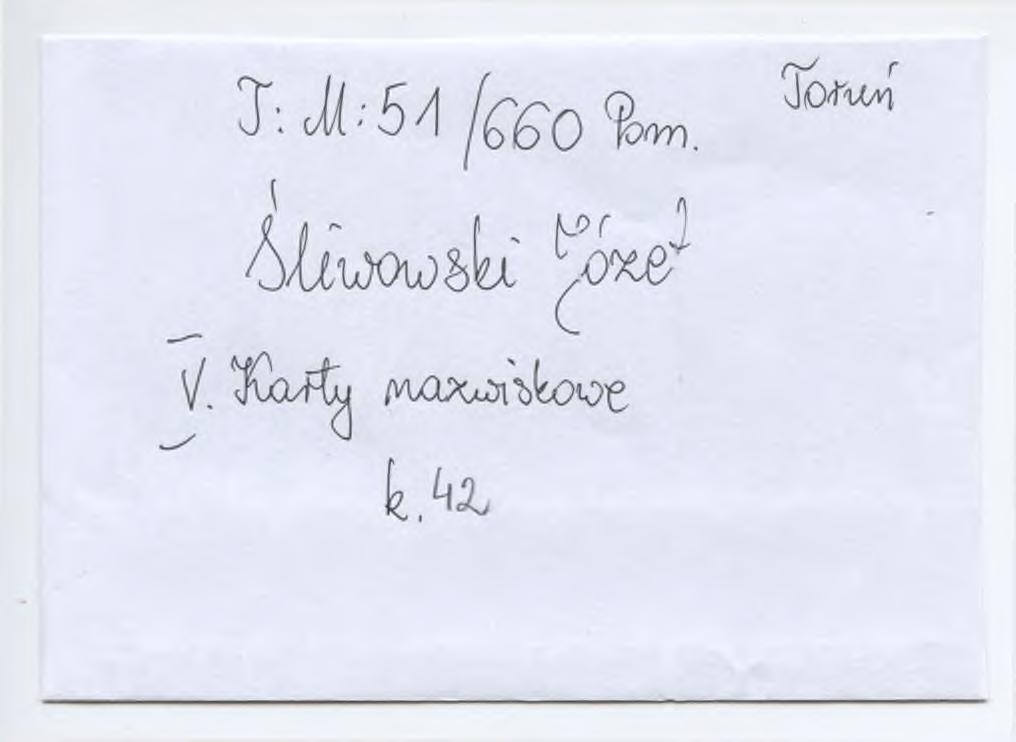 Toruń
T: M: 51/660 Pom.
Śliwowski Józef
V. Karty nazwiskowe
k. 42